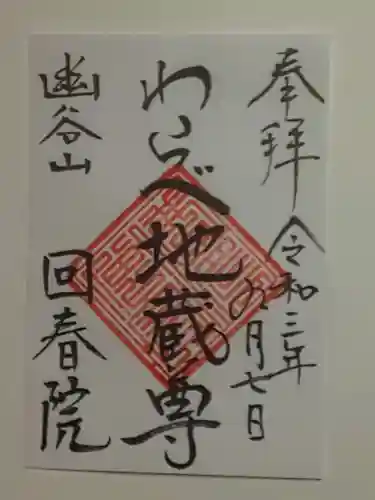 奉拝
令和三年
九月七日
わらべ地蔵尊
幽谷山
回春院